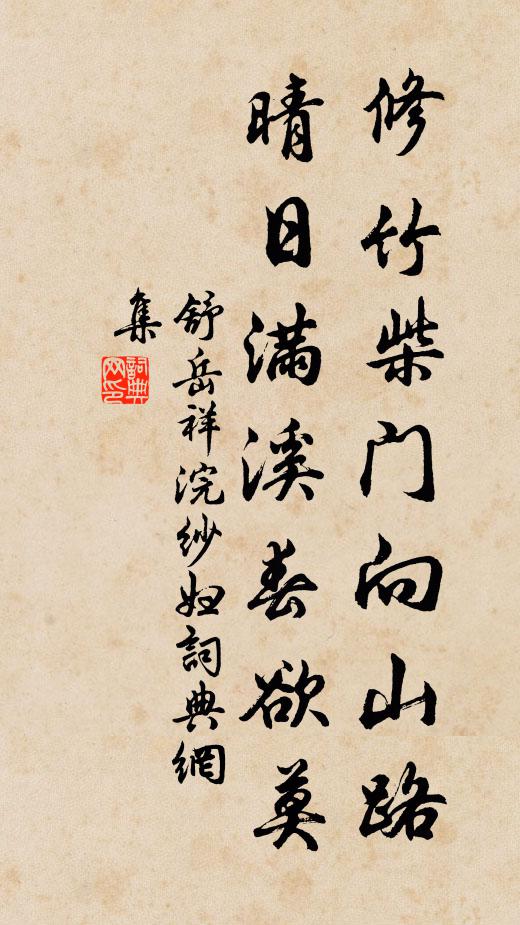 修竹柴门向山路
晴日满溪春欲莫
舒岳祥浣纱妇詞典網
集
詞典网印